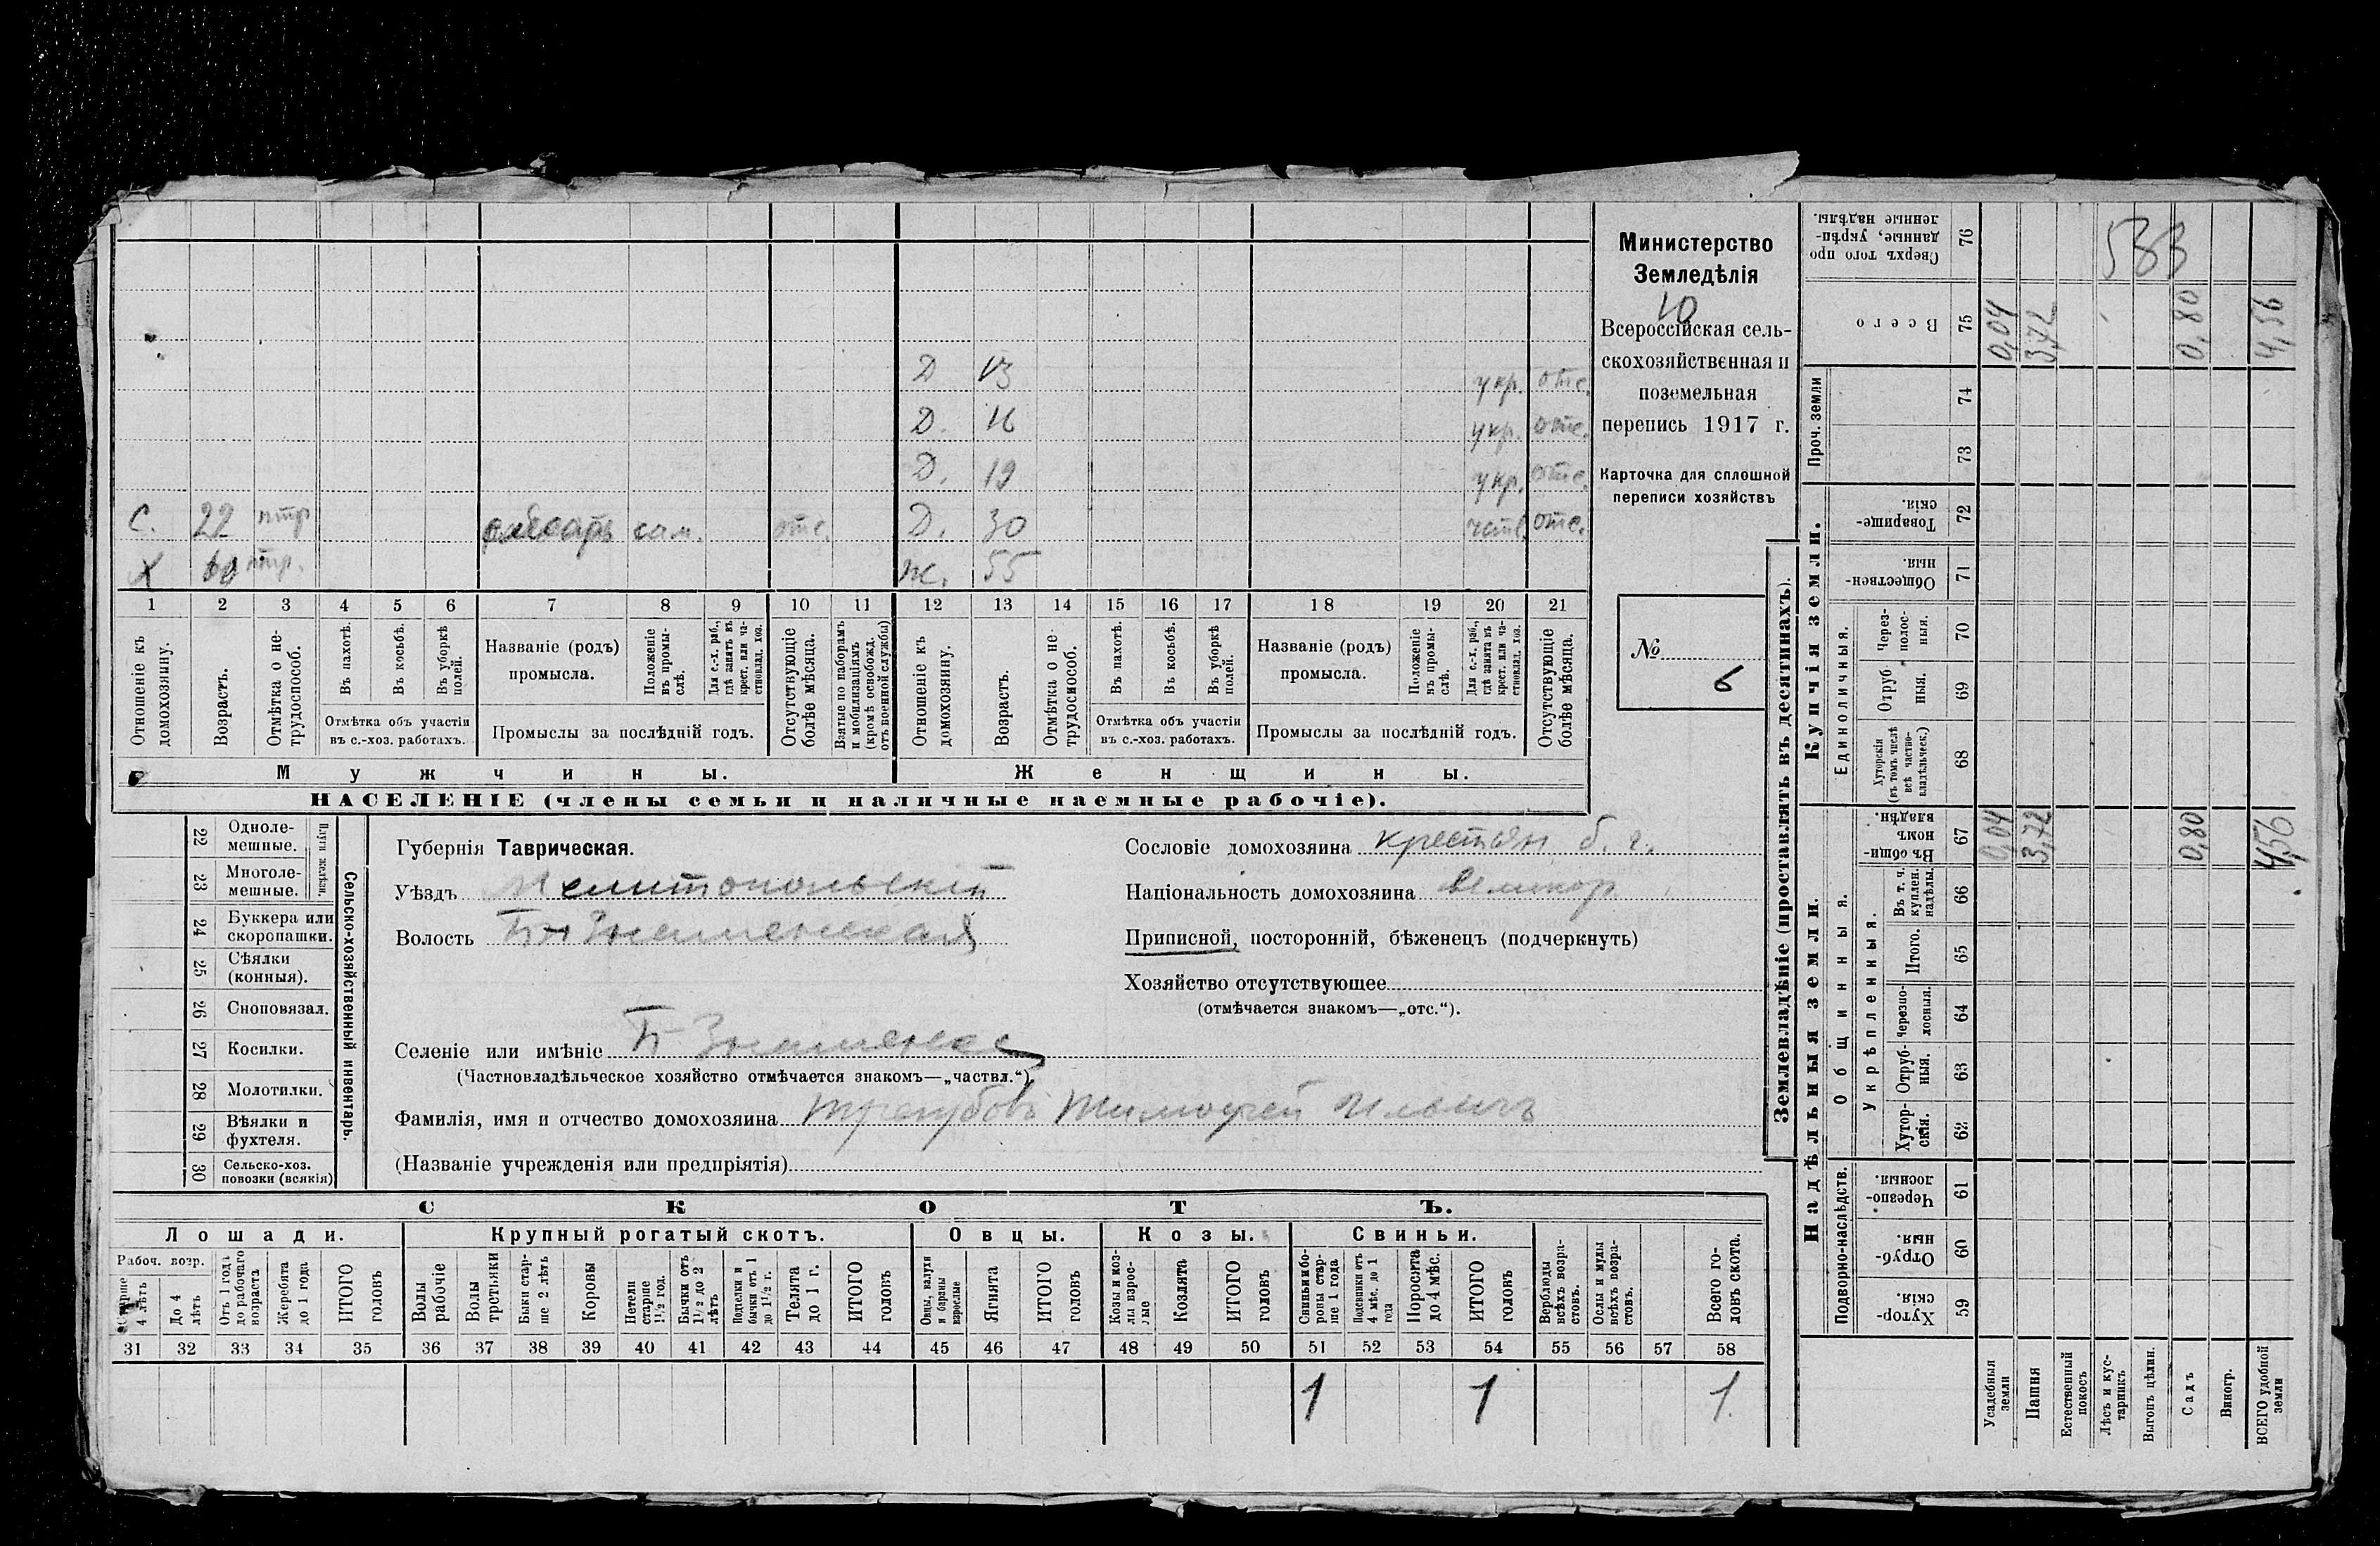 Министерство
Земледѣлія
10
Всероссійская сель-
скохозяйственная и
поземельная
перепись 1917 г.
Карточка для сплошной
переписи хозяйствъ
№ 6
Д 13 укр. отс.
Д. 16 укр. отс.
Д. 19 укр. отс.
С. 22 нтр сам. отс. Д. 30 отс.
Х 60 нтр. ж. 55
1 2 3 4 5 6 7 8 9 10 11 12 13 14 15 16 17 18 19 20 21
Отношеніе къ домохозяину.
Возрастъ.
Отмѣтка о не-трудоспособ.
Въ пахотѣ.
Въ косьбѣ.
Въ уборкѣ полей.
Отмѣтка объ участіи
въ с.-хоз. работахъ.
Названіе (родъ)
промысла.
Положеніе въ промы-слѣ.
Для с.-х. раб., гдѣ занятъ въ крест. или ча-стновлад. хоз.
Промыслы за послѣдній годъ.
Отсутствующіе болѣе мѣсяца.
Взятые по наборамъ и мобилизаціямъ (кромѣ освобожд. отъ военной службы)
Отношеніе къ домохозяину.
Возрастъ.
Отмѣтка о не-трудоспособ.
Въ пахотѣ.
Въ косьбѣ.
Въ уборкѣ полей.
Отмѣтка объ участіи
въ с.-хоз. работахъ.
Названіе (родъ)
промысла.
Положеніе въ промы-слѣ.
Для с.-х. раб., гдѣ занята въ крест. или ча-стновлад. хоз.
Промыслы за послѣдній годъ.
Отсутствующіе болѣе мѣсяца.
Мужчины. Женщины.
НАСЕЛЕНІЕ (члены семьи и наличные наемные рабочіе).
22 Одноле-мешные.
23 Многоле-мешные.
Плуги желѣзн.
24 Буккера или скоропашки.
25 Сѣялки (конныя).
26 Сноповязал.
27 Косилки.
28 Молотилки.
29 Вѣялки и фухтеля.
30 Сельско-хоз. повозки (всякія)
Сельско-хозяйственный инвентарь.
Губернія Таврическая.
Уѣздъ Мелитопольскій
Волость Б-Знаменская
Селеніе или имѣніе Б-Знаменка
(Частновладѣльческое хозяйство отмѣчается знакомъ—„частвл.“).
Фамилія, имя и отчество домохозяина Трегубовъ Тимофей Ильичъ
(Названіе учрежденія или предпріятія)
Сословіе домохозяина крестьян б. г.
Національность домохозяина великор.
Приписной, посторонній, бѣженецъ (подчеркнуть)
Хозяйство отсутствующее
(отмѣчается знакомъ—„отс.“).
СКОТЪ.
Лошади. Крупный рогатый скотъ. Овцы. Козы. Свиньи.
Рабоч. возр.
Старше 4 лѣтъ
До 4 лѣтъ
Отъ 1 года до рабочаго возраста
Жеребята до 1 года
ИТОГО головъ
Волы рабочіе
Волы третьяки
Быки стар-ше 2 лѣтъ
Коровы
Нетели старше 1½ год.
Бычки отъ 1½ до 2 лѣтъ
Подтелки и бычки отъ 1 до 1½ г.
Телята до 1 г.
ИТОГО головъ
Овцы, валухи и бараны взрослые
Ягнята
ИТОГО головъ
Козы и коз-лы взрос-лые
Козлята
ИТОГО головъ
Свиньи и бо-ровы стар-ше 1 года
Подсвинки отъ 4 мѣс. до 1 года
Поросята до 4 мѣс.
ИТОГО головъ
Верблюды всѣхъ возра-стовъ.
Ослы и мулы всѣхъ возра-стовъ.
Всего го-ловъ скота.
31 32 33 34 35 36 37 38 39 40 41 42 43 44 45 46 47 48 49 50 51 52 53 54 55 56 57 58
1 1 1
Землевладѣніе (проставлять въ десятинахъ).
Надѣльныя земли. Купчія земли. Проч. земли
Подворно-наслѣдств.
Общинныя.
Укрѣпленныя.
Единоличныя.
Хутор-скія. 59
Отруб-ныя. 60
Черезпо-лосныя. 61
Хутор-скія. 62
Отруб-ныя. 63
Черезпо-лосныя. 64
Итого. 65
Въ т. ч. куплен. надѣлы. 66
Въ общи-номъ владѣн. 67
0,04 3,72 0,80 4,56
Хуторскія (въ томъ числѣ всѣ частно-владѣльческ.) 68
Отруб ныя. 69
Через-полос-ныя. 70
Обществен-ныя. 71
Товарище-скія. 72
73
74
Всего 75
0,04 3,72 0,80 4,56
Сверхъ того про данные, укрѣп-ленные надѣлы. 76
533
Усадебныя земли
Пашня
Естественный покосъ
Лѣсъ и кус-тарникъ
Выгонъ цѣлин.
Садъ
Виногр.
ВСЕГО удобной земли